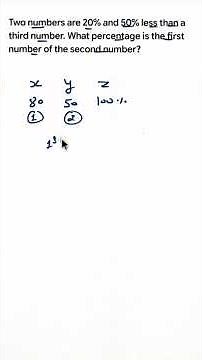 Two numbers are 20% and 50% less than a
third number. What percentage is the first
number of the second number?
x y z
80 50 100%
1 2
1st